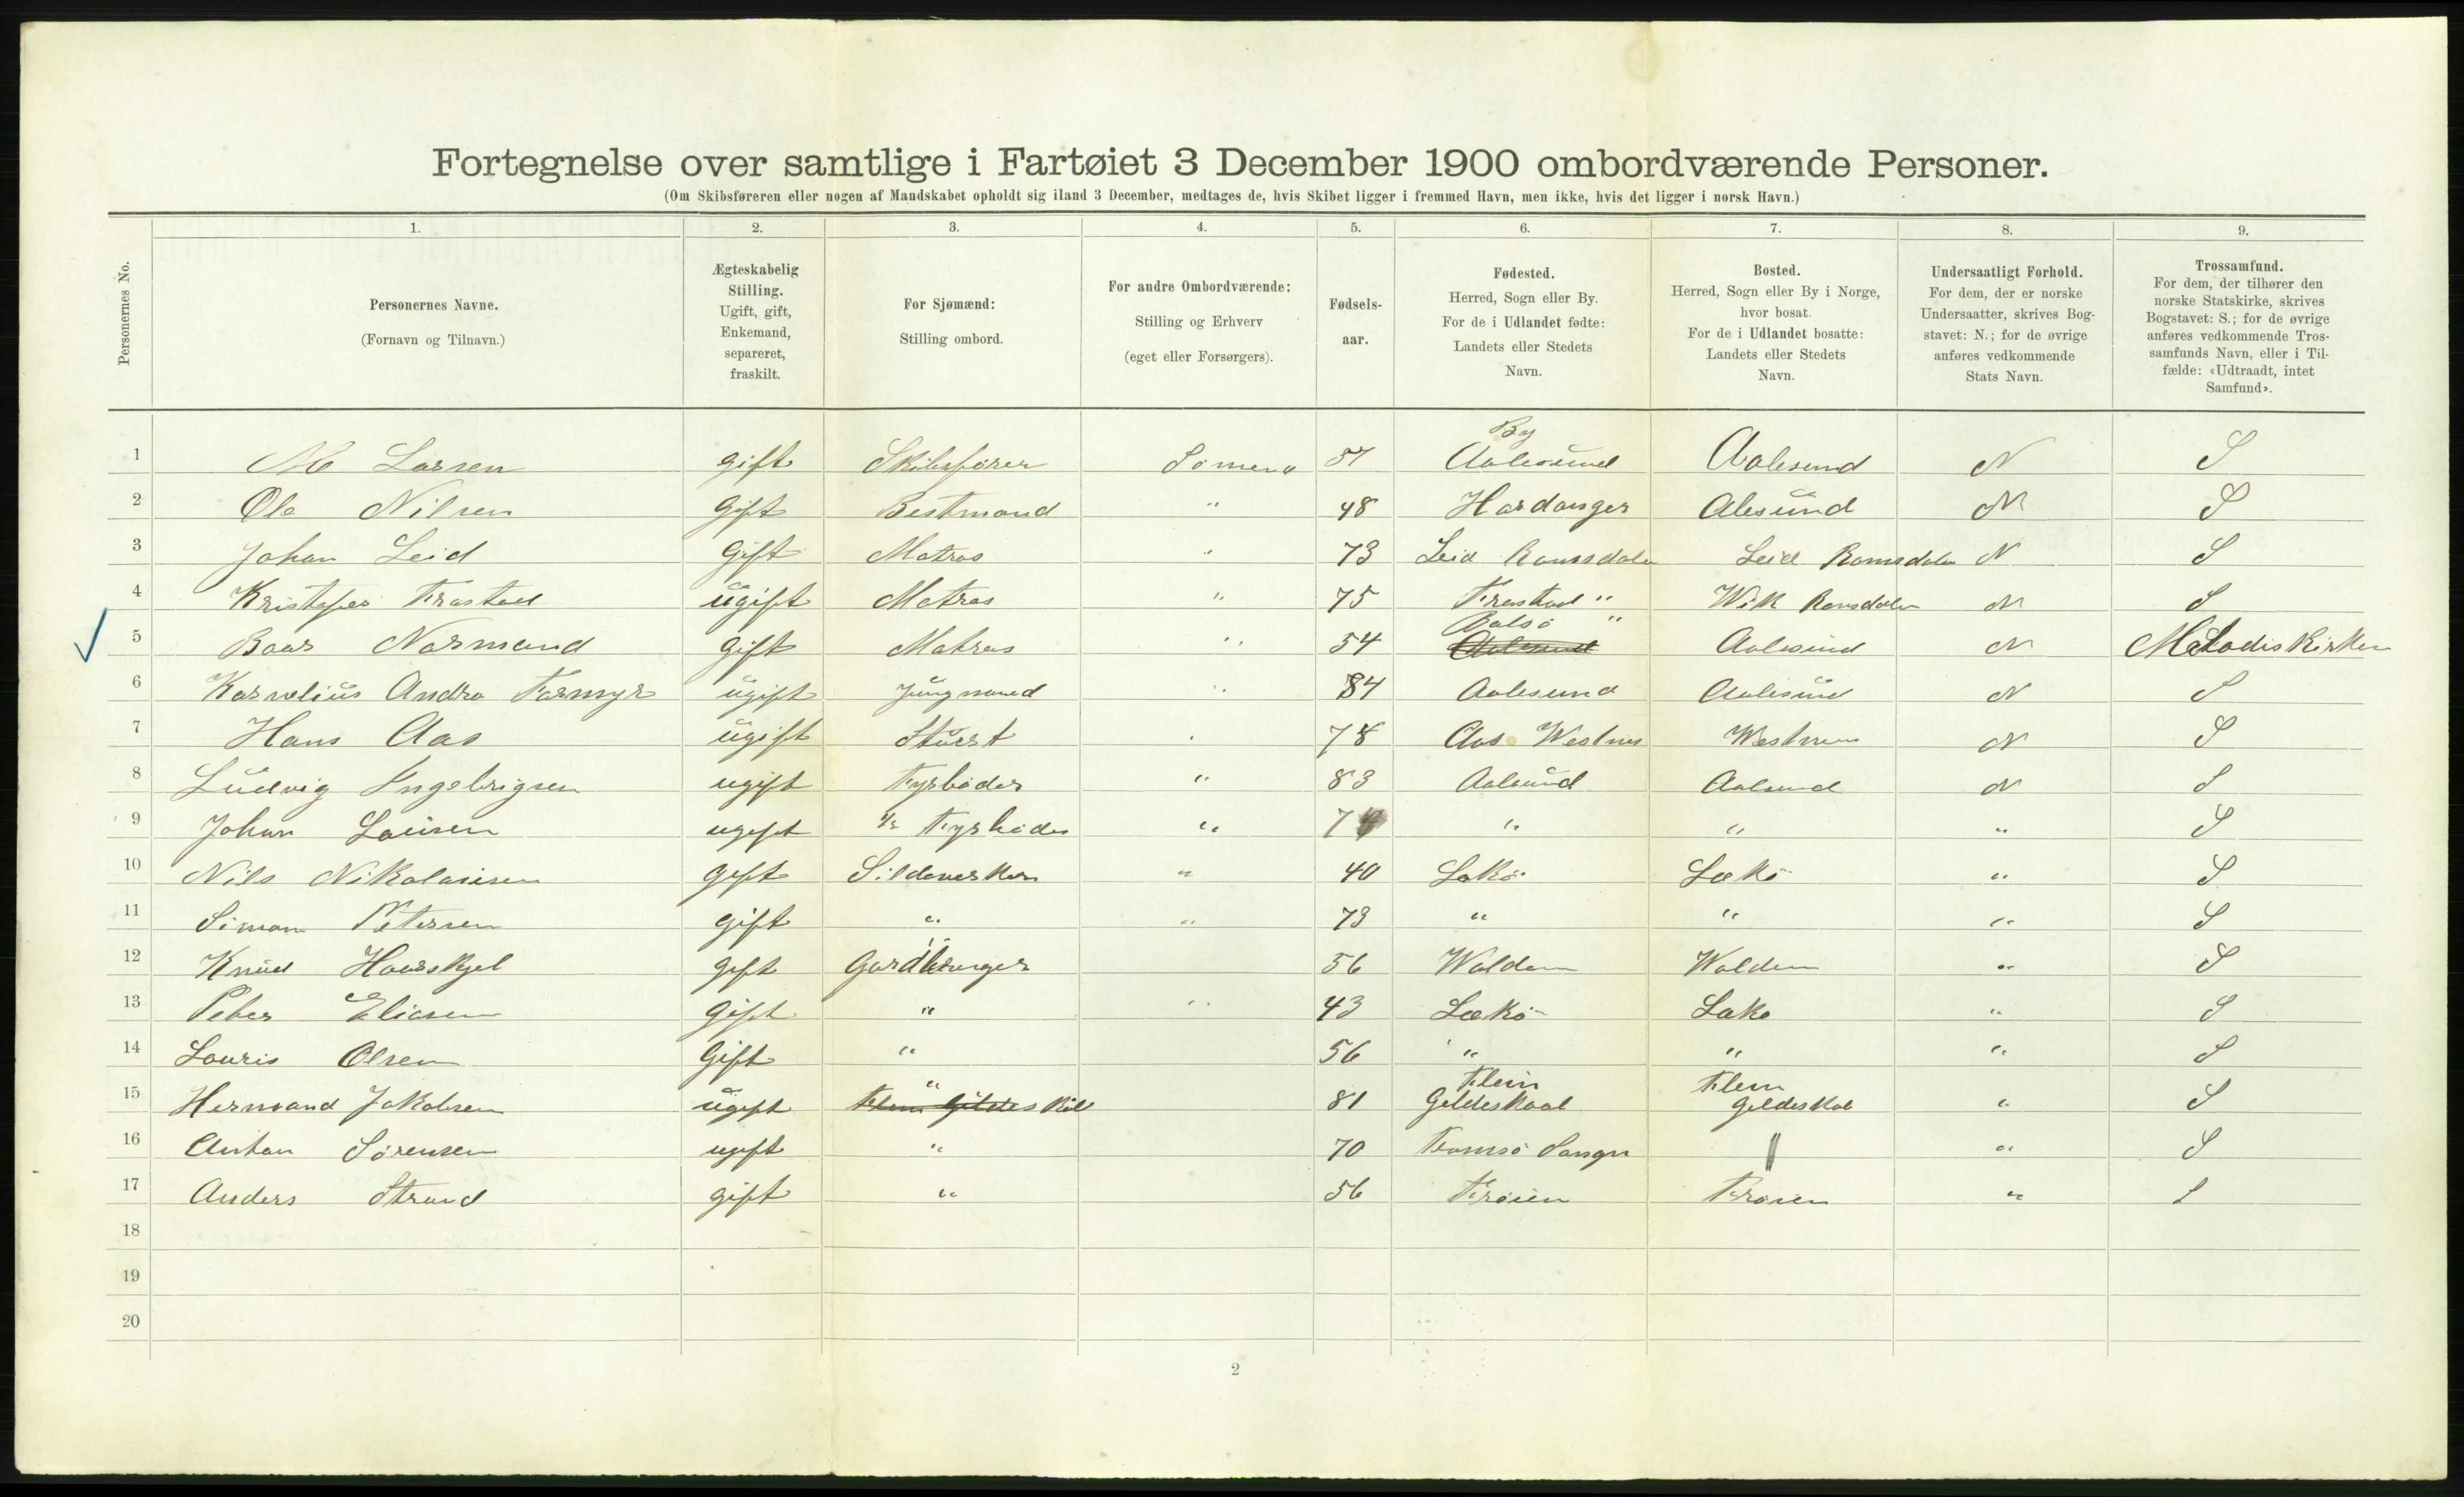 Fortegnelse over samtlige i Fartøiet 3 December 1900 ombordværende Personer.
(Om Skibsføreren eller nogen af Mandskabet opholdt sig iland 3 December, medtages de, hvis Skibet ligger i fremmed Havn, men ikke, hvis det ligger i norsk Havn.)
Personernes No.
1. 2. 3. 4. 5. 6. 7. 8. 9.
Personernes Navne.
(Fornavn og Tilnavn.)
Ægteskabelig
Stilling.
Ugift, gift,
Enkemand,
separeret,
fraskilt.
For Sjømænd:
Stilling ombord.
For andre Ombordværende:
Stilling og Erhverv
(eget eller Forsørgers).
Fødsels-
aar.
Fødested.
Herred, Sogn eller By.
For de i Udlandet fødte:
Landets eller Stedets
Navn.
Bosted.
Herred, Sogn eller By i Norge,
hvor bosat.
For de i Udlandet bosatte:
Landets eller Stedets
Navn.
Undersaatligt Forhold.
For dem, der er norske
Undersaatter, skrives Bog-
stavet: N.; for de øvrige
anføres vedkommende
Stats Navn.
Trossamfund.
For dem, der tilhører den
norske Statskirke, skrives
Bogstavet: S.; for de øvrige
anføres vedkommende Tros-
samfunds Navn, eller i Til-
fælde: «Udtraadt, intet
Samfund».
By
1 Larsen gift Skibsfører Sømend Aalesund Aalesund N S
2 Ole Nilsen Gift Bestmand " 48 Hardanger Alesund N S
3 Johan Leid Gift Matros " 73 Leid Romsdalen Leid Romsdalen N S
4 Kristofer Frostad ugift Matros " 75 Frostad " Wik Romsdalen N S
Bolsø "
5 Baar Normand gift Matros " 54 Aalesund Aalesund N Metodiskirken
6 Kornelius Andra Farmyr ugift Jungmand " 84 Aalesund Aalesund N S
7 Hans Aas ugift Stuert " 78 Aas Westnes Westnes N S
8 Ludvig Ingebrigsen ugift Fyrbøder " 83 Aalsund Aalsund N S
9 Johan ugift Fyrbøder " 7 " " " S
10 Nils Nikolaisen gift " 40 Lekø Lekø " S
11 Simon Petersen gift " " 73 " " " S
12 Knud gift 56 Woldem Wolden " S
13 Peter Eliesen gift " " 43 Lekø Leko " S
14 Louris Olsen Gift " 56 " " " S
Flein Flein
15 Hermand Jakobsen ugift " 81 Gildeskaal Gildeskal " S
16 Anton Sørensen ugift " 70 Tromsø " " S
17 Anders Strand gift " 56 Frøien Frøien " S
18
19
20
2